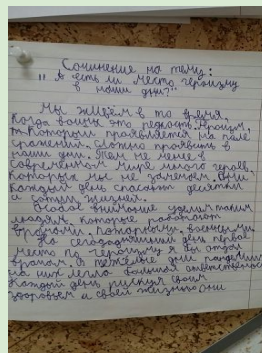 Сочинение на тему:
"А есть ли место героизму
в наши дни?"
Мы живём в то время,
когда войны это редкость. Героизм,
который проявляется на поле
сражения, сложно проявить в
наши дни. Тем не менее в
современном мире много героев,
которых мы не замечаем. Они
каждый день спасают десятки
и сотни жизней.
Особое внимание уделим таким
людям, которые работают
врачами, пожарными, военными.
На сегодняшний день первое
место по героизму я бы отдал
врачам. В тяжёлые дни пандемии
на них легла большая ответственность
Каждый день рискуя своим
здоровьем и своей жизнью они